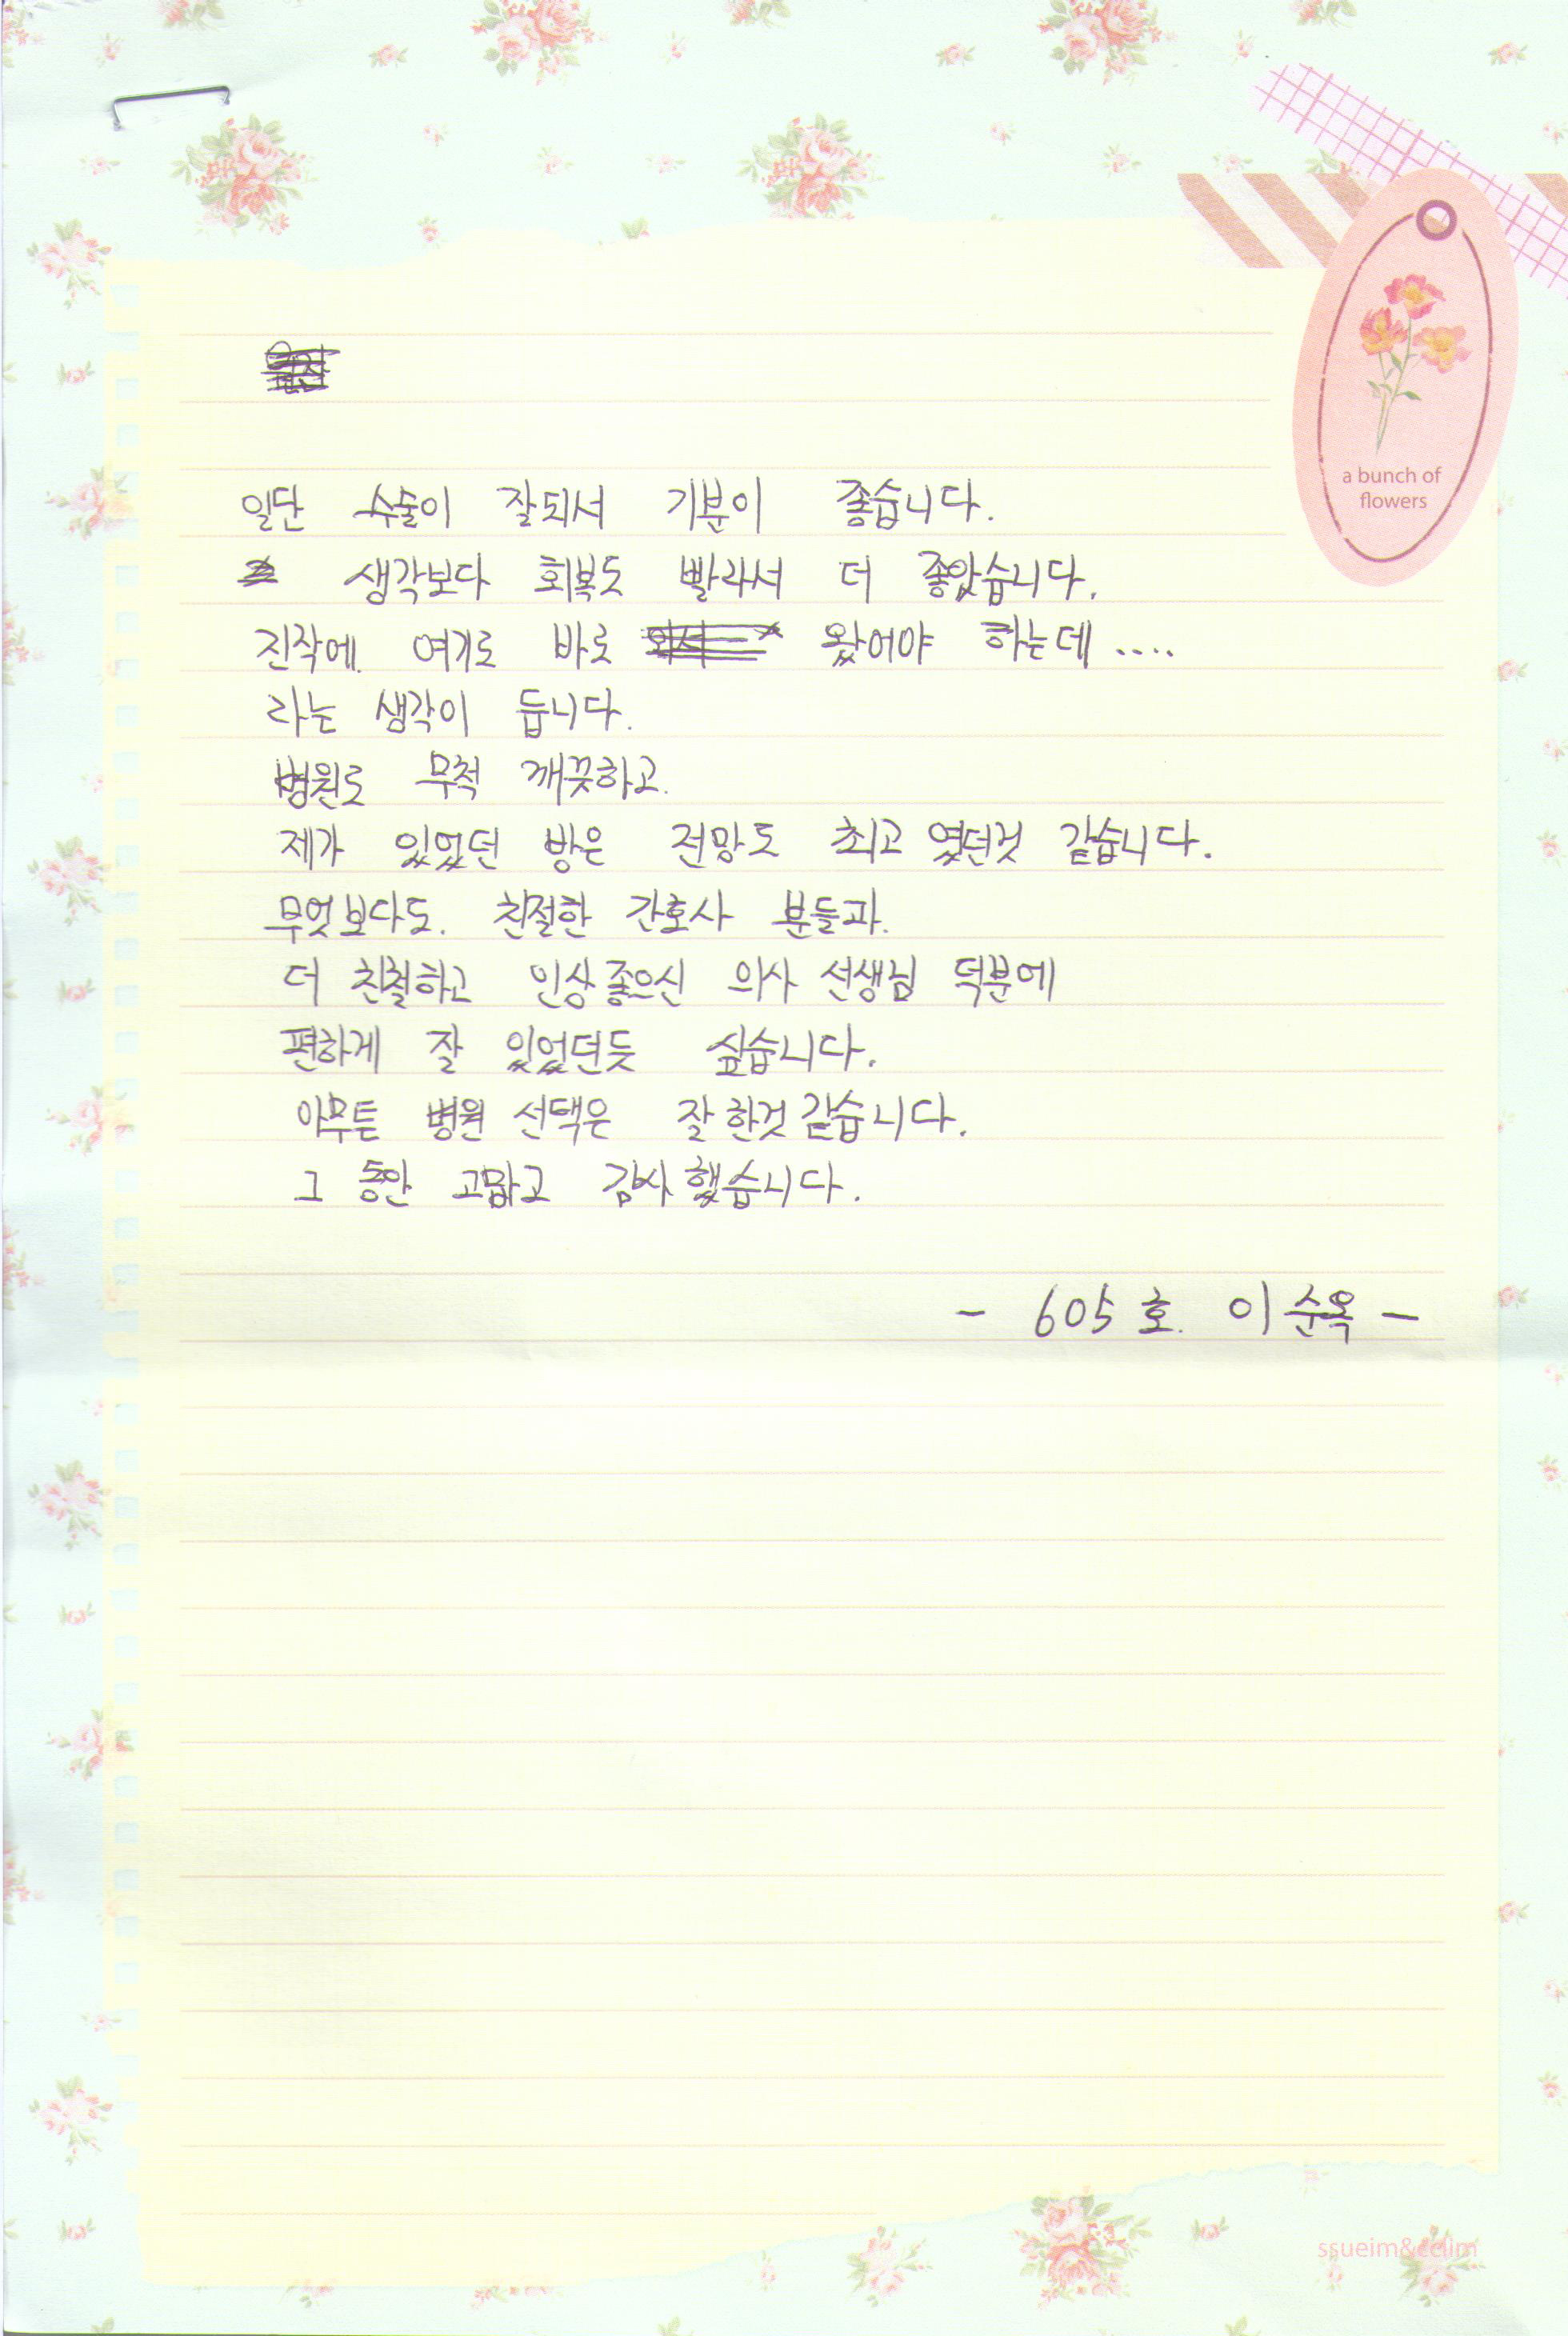 a bunch of
flowers
일단 수술이 잘되서 기분이 좋습니다.
생각보다 회복도 빨라서 더 좋았습니다.
진작에 여기로 바로 왔어야 하는데 ....
라는 생각이 듭니다.
병원도 무척 깨끗하고.
제가 있었던 방은 전망도 최고 였던것 같습니다.
무엇보다도. 친절한 간호사 분들과.
더 친철하고 인상좋으신 의사 선생님 덕분에
편하게 잘 있었던듯 싶습니다.
아무튼 병원 선택은 잘한것 같습니다.
그 동안 고맙고 감사했습니다.
- 605호. 이순옥 -